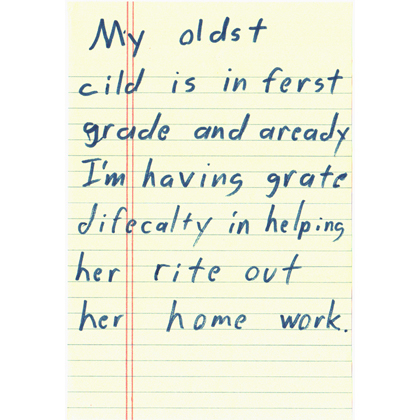 My oldst
cild is in ferst
grade and aready
I'm having grate
difecalty in helping
her rite out
her home work.